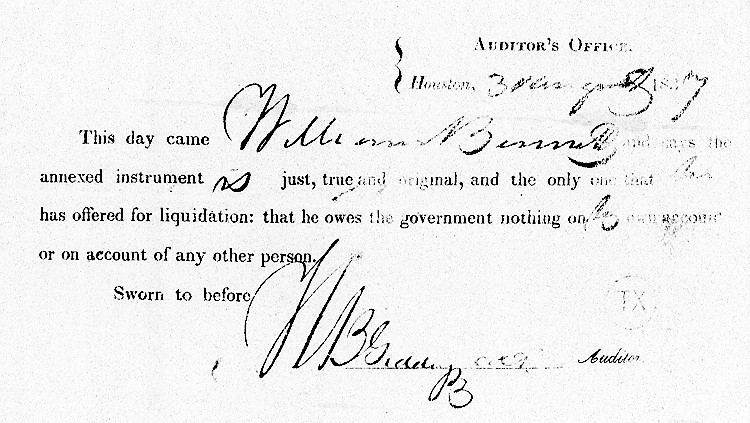 AUDITOR'S OFFICE.
Houston, 3 August 1837
This day came William Bennett and says the
annexed instrument is just, true and original, and the only one that he
has offered for liquidation: that he owes the government nothing on his own account
or on account of any other person.
Sworn to before
TX
W B Auditor